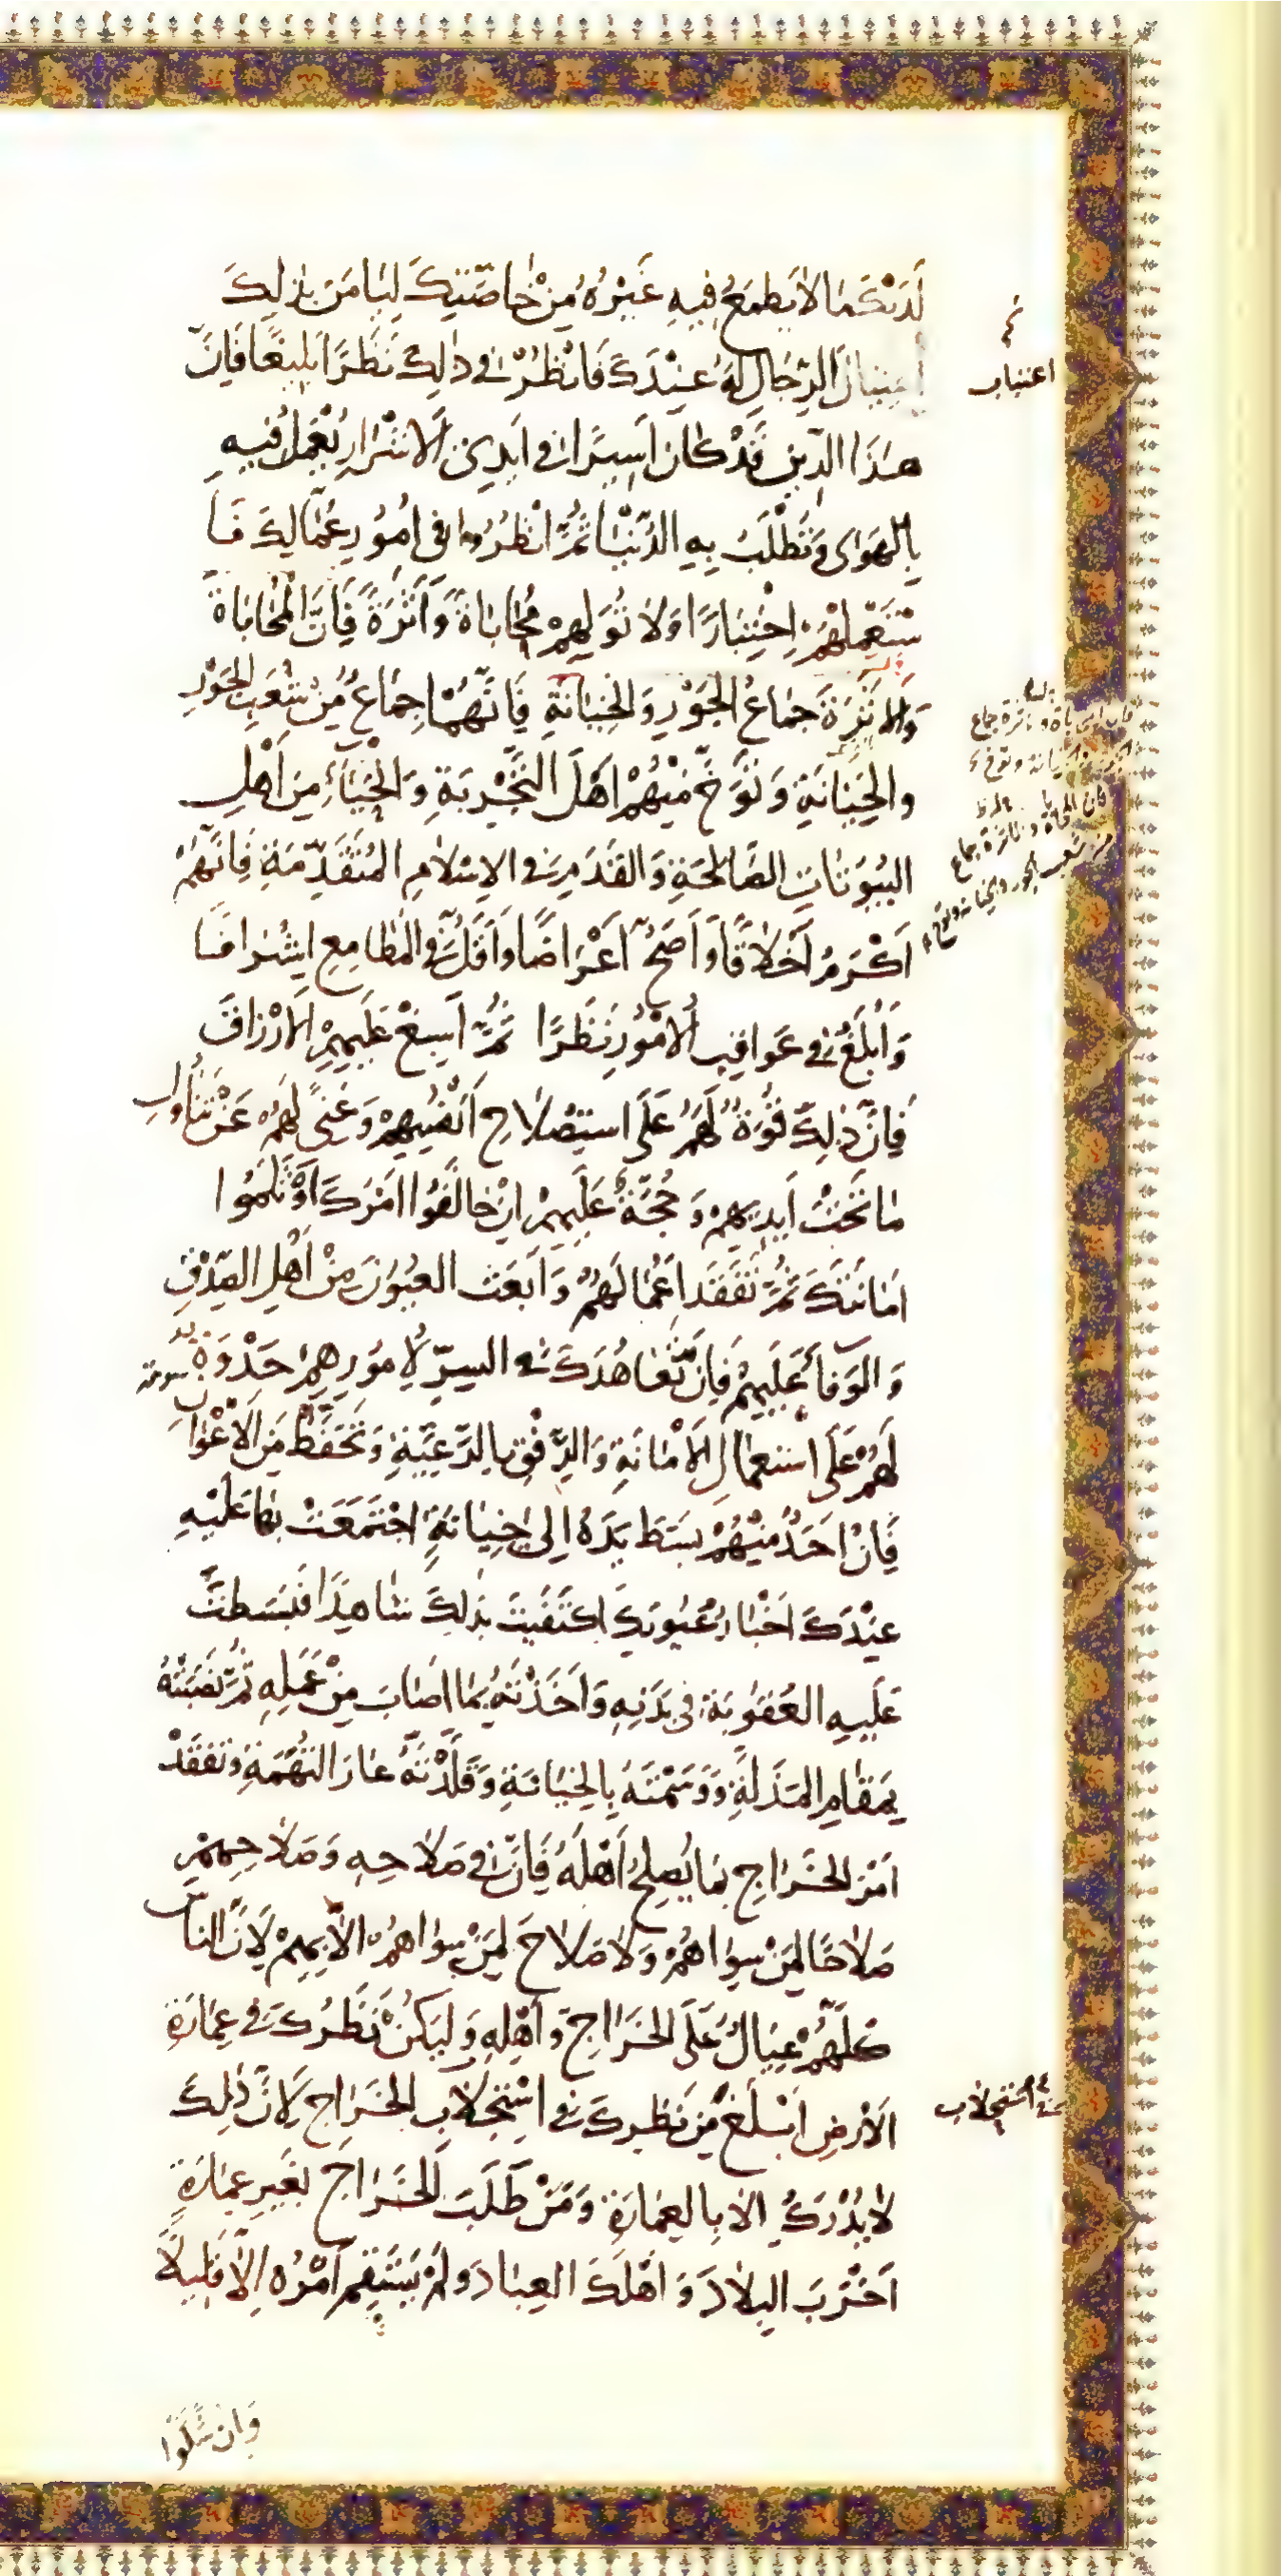 لَدَيْكَ مٰا لاٰ يَطْمَعُ فِيهِ غَيْرُهُ مِنْ خٰاصَّتِكَ لِيَاْمَنَ بِذٰلِكَ
اغْتِيٰالَ الرِّجٰالِ لَهُ عِنْدَكَ فَانْظُرْ فى ذٰلِكَ نَظَرًا بَلِيغًا فَاِنَّ
هٰذَا الدّينَ قَدْ كٰانَ اَسيرًا فى اَيْدِى الْاَشْرٰارِ يُعْمَلُ فيهِ
بِالْهَوٰى وَ تُطْلَبُ بِهِ الدُّنْيٰا ثُمَّ انْظُرْ فى اُمُورِ عُمّٰالِكَ فَا
سْتَعْمِلْهُمْ اِخْتِبٰارًا وَ لاٰ تُوَلِّهِمْ مُحٰابٰاةً وَ اَثَرَةً فَاِنَّ الْمُحٰابٰاةَ
وَ الْاَثَرَةَ جِمٰاعُ الْجَوْرِ وَ الْخِيٰانَةِ فَاِنَّهُمٰا جِمٰاعٌ مِنْ شُعَبِ الْجَوْرِ
وَ الْخِيٰانَةِ وَ تَوَخَّ مِنْهُمْ اَهْلَ التَّجْرِبَةِ وَ الْحَيٰٓاءِ مِنْ اَهْلِ
الْبُيُوتٰاتِ الصّٰالِحَةِ وَ الْقَدَمِ فى الْاِسْلاٰمِ الْمُتَقَدِّمَةِ فَاِنَّهُمْ
اَكْرَمُ اَخْلاٰقًا وَ اَصَحُّ اَعْرٰاضًا وَ اَقَلُّ فى الْمَطٰامِعِ اِشْرٰافًا
وَ اَبْلَغُ فى عَوٰاقِبِ الْاُمُورِ نَظَرًا ثُمَّ اَسْبِغْ عَلَيْهِمُ الْاَرْزٰاقَ
فَاِنَّ ذٰلِكَ قُوَّةٌ لَهُمْ عَلَى اسْتِصْلاٰحِ اَنْفُسِهِمْ وَ غِنًى لَهُمْ عَنْ تَنٰاوُلِ
مٰا تَحْتَ اَيْدِيهِمْ وَ حُجَّةٌ عَلَيْهِمْ اِنْ خٰالَفُوا اَمْرَكَ اَوْ ثَلَمُوا
اَمٰانَتَكَ ثُمَّ تَفَقَّدْ اَعْمٰالَهُمْ وَ ابْعَثِ الْعُيُونَ مِنْ اَهْلِ الصِّدْقِ
وَ الْوَفٰٓاءِ عَلَيْهِمْ فَاِنَّ تَعٰاهُدَكَ فى السِّرِّ لِاُمُورِهِمْ حَدْوَةٌ
لَهُمْ عَلَى اسْتِعْمٰالِ الْاَمٰانَةِ وَ الرِّفْقِ بِالرَّعِيَّةِ وَ تَحَفَّظْ مِنَ الْاَعْوٰانِ
فَاِنْ اَحَدٌ مِنْهُمْ بَسَطَ يَدَهُ اِلٰى خِيٰانَةٍ اجْتَمَعَتْ بِهٰا عَلَيْهِ
عِنْدَكَ اَخْبٰارُ عُيُونِكَ اكْتَفَيْتَ بِذٰلِكَ شٰاهِدًا فَبَسَطْتَ
عَلَيْهِ الْعُقُوبَةَ فى بَدَنِهِ وَ اَخَذْتَهُ بِمٰا اَصٰابَ مِنْ عَمَلِهِ ثُمَّ نَصَبْتَهُ
بِمَقٰامِ الْمَذَلَّةِ وَ وَسَمْتَهُ بِالْخِيٰانَةِ وَ قَلَّدْتَهُ عٰارَ التُّهَمَةِ وَ تَفَقَّدْ
اَمْرَ الْخَرٰاجِ بِمٰا يُصْلِحُ اَهْلَهُ فَاِنَّ فى صَلاٰحِهِ وَ صَلاٰحِهِمْ
صَلاٰحًا لِمَنْ سِوٰاهُمْ وَ لاٰ صَلاٰحَ لِمَنْ سِوٰاهُمْ اِلاّٰ بِهِمْ لِاَنَّ النّٰاسَ
كُلَّهُمْ عِيٰالٌ عَلَى الْخَرٰاجِ وَ اَهْلِهِ وَ لْيَكُنْ نَظَرُكَ فى عِمٰارَةِ
الْاَرْضِ اَبْلَغَ مِنْ نَظَرِكَ فى اسْتِجْلاٰبِ الْخَرٰاجِ لِاَنَّ ذٰلِكَ
لاٰ يُدْرَكُ اِلاّٰ بِالْعِمٰارَةِ وَ مَنْ طَلَبَ الْخَرٰاجَ بِغَيْرِ عِمٰارَةٍ
اَخْرَبَ الْبِلاٰدَ وَ اَهْلَكَ الْعِبٰادَ وَ لَمْ يَسْتَقِمْ اَمْرُهُ اِلاّٰ قَليلاً
وَ اِنْ شَكَوْا
اغتياب
استجلاب